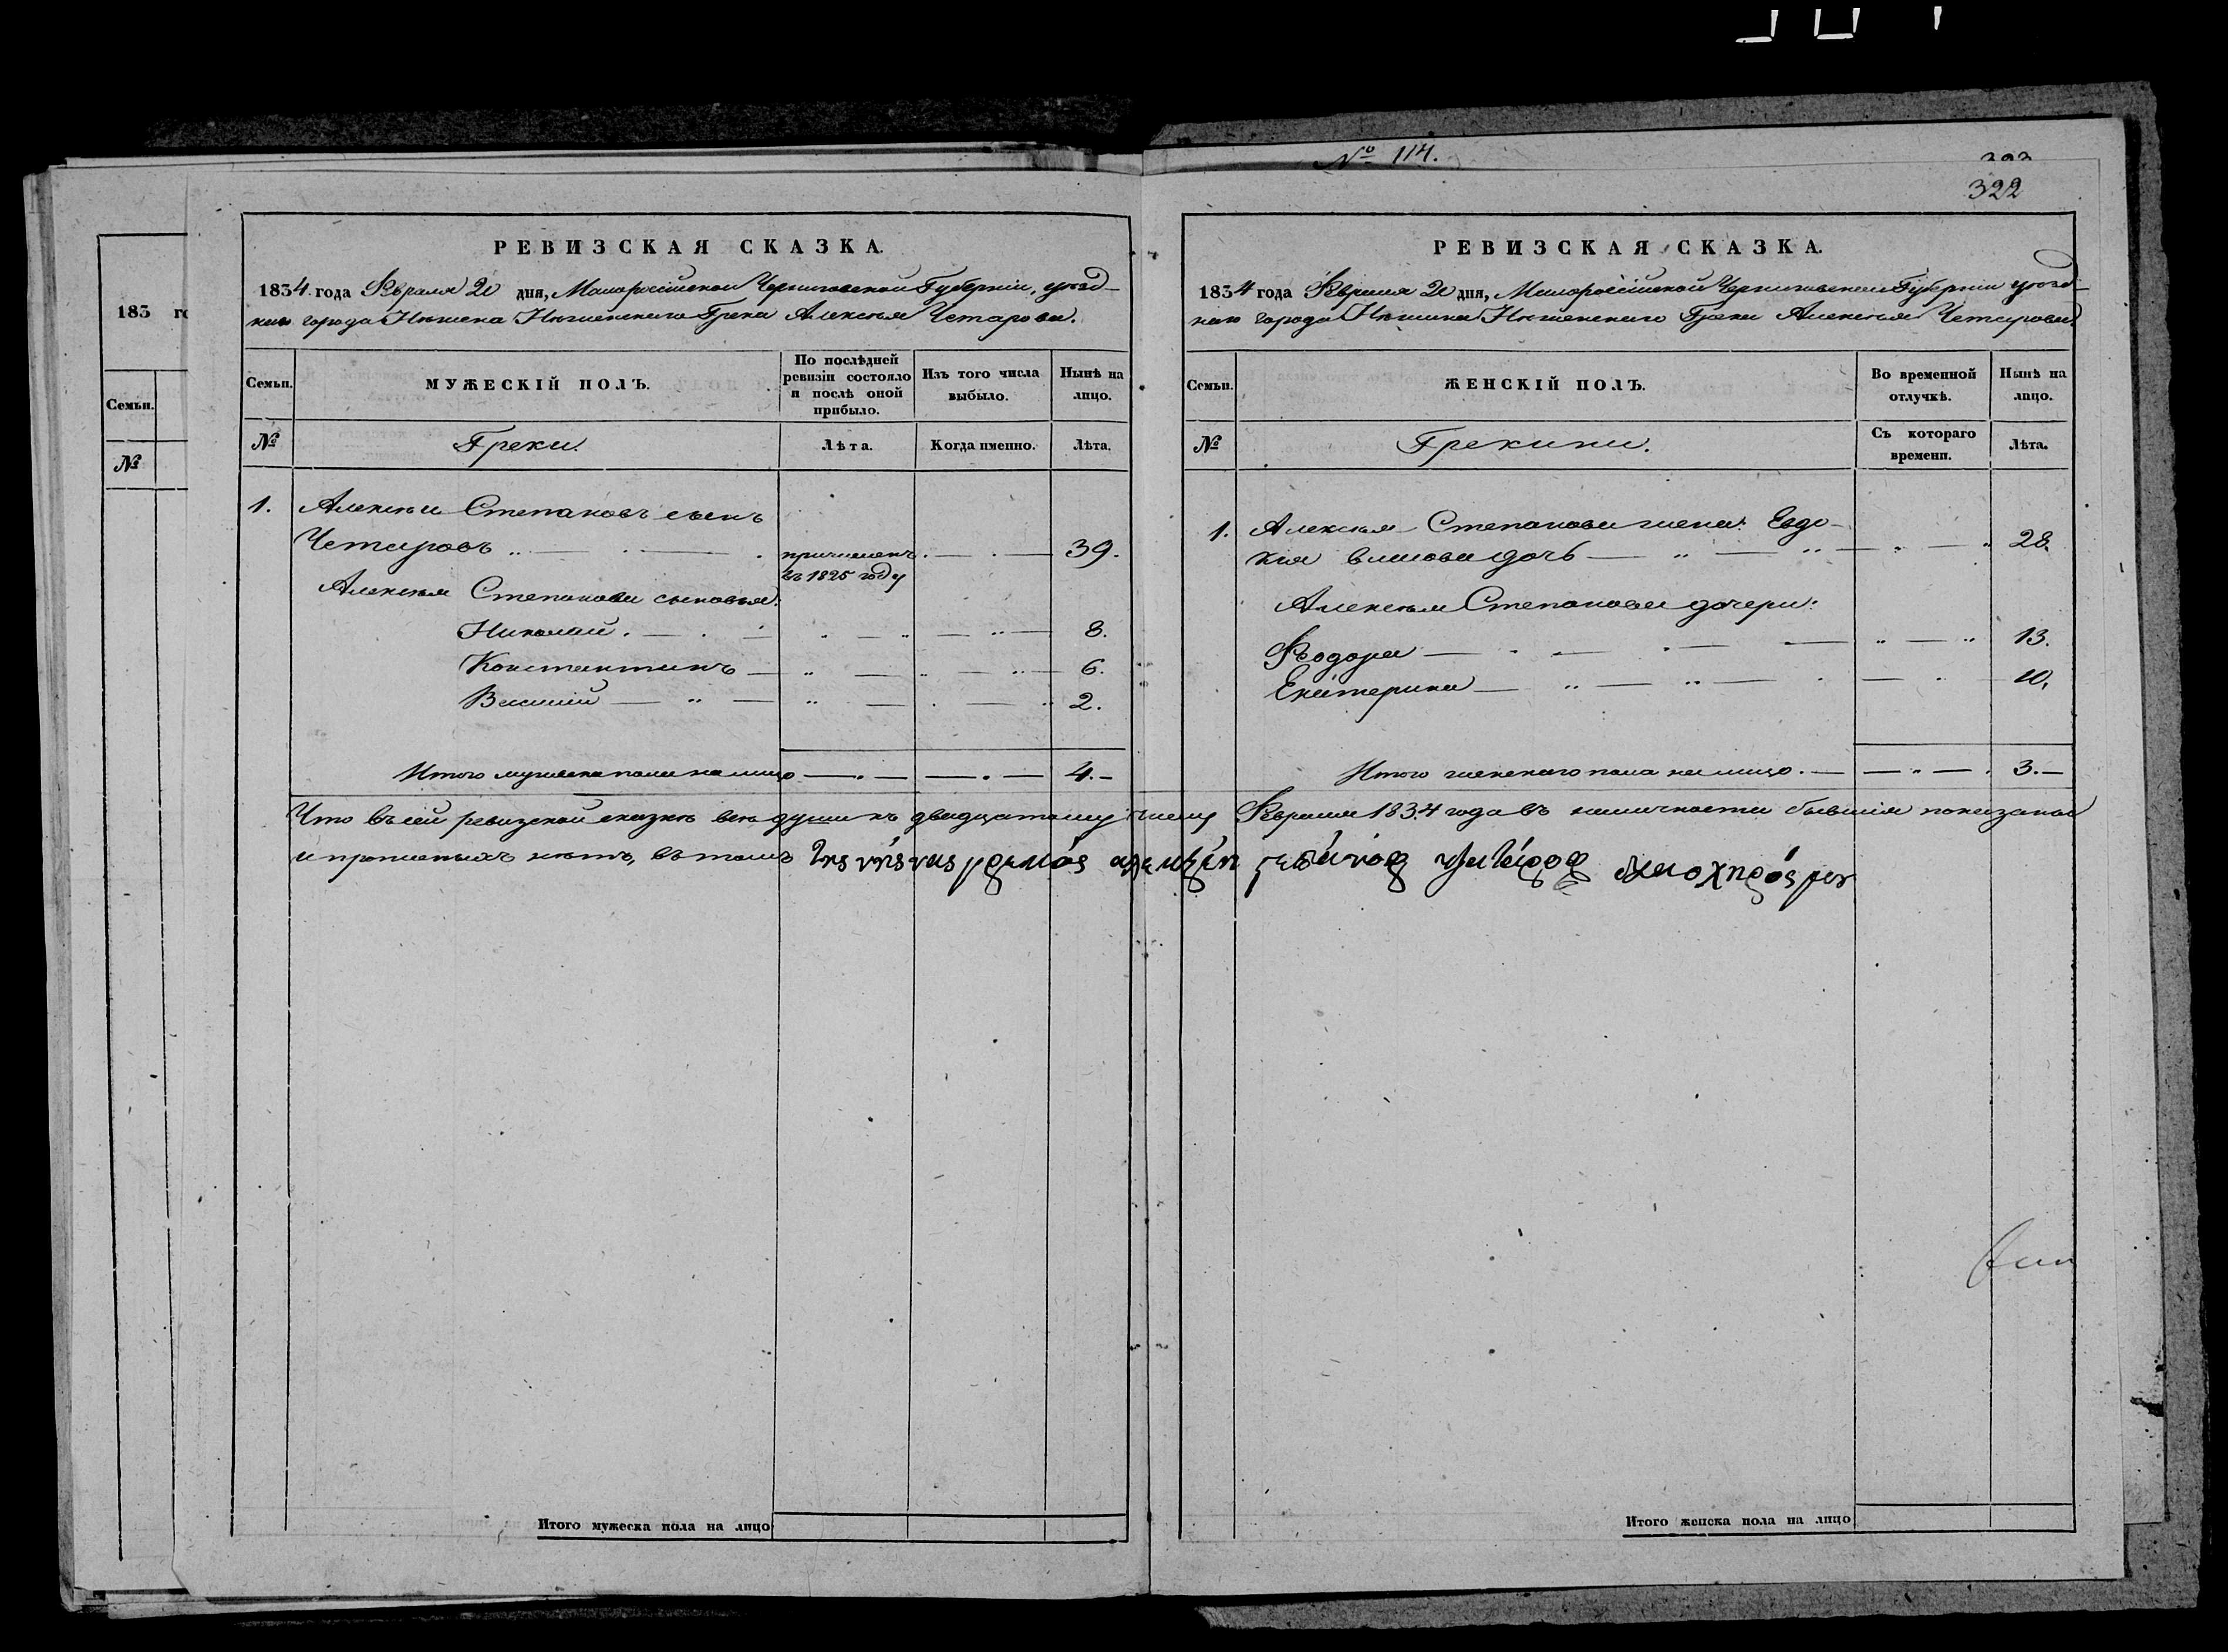 № 114.
322
РЕВИЗСКАЯ СКАЗКА.
1834 года Февраля 20 дня, Малороссійской Черниговской Губерніи, уѣзд-
наго города Нѣжина Нѣжинскаго Грека Алексѣя Четарова.
Семьи. МУЖЕСКІЙ ПОЛЪ. По послѣдней ревизіи состояло и послѣ оной прибыло. Изъ того числа выбыло. Нынѣ на лицо.
№ Греки. Лѣта. Когда именно. Лѣта.
1. Алексѣй Степановъ сынъ
Четаровъ причисленъ 39.
въ 1825 году
Алексѣя Степанова сыновья:
Николай. 8.
Константинъ 6.
Василій 2.
Итого мужеска пола на лицо 4.
Итого мужеска пола на лицо
РЕВИЗСКАЯ СКАЗКА.
1834 года Февраля 20 дня, Малороссійской Черниговской Губерніи уѣзд-
наго города Нѣжина Нѣжинскаго Грека Алексѣя Четарова.
Семьи. ЖЕНСКІЙ ПОЛЪ. Во временной отлучкѣ. Нынѣ на лицо.
№ Грекини. Съ котораго времени. Лѣта.
1. Алексѣя Степанова жена: Евдо-
кія дочь 28.
Алексѣя Степанова дочери:
Ѳеодора 13.
Екатерина 10.
Итого женскаго пола на лицо. 3.
Что въ сей ревизской сказкѣ всѣ души къ двадцатому числу Февраля 1834 года въ наличности бывшія показаны
и прописныхъ нѣтъ, въ томъ
Итого женска пола на лицо
183 го
Семьи.
№